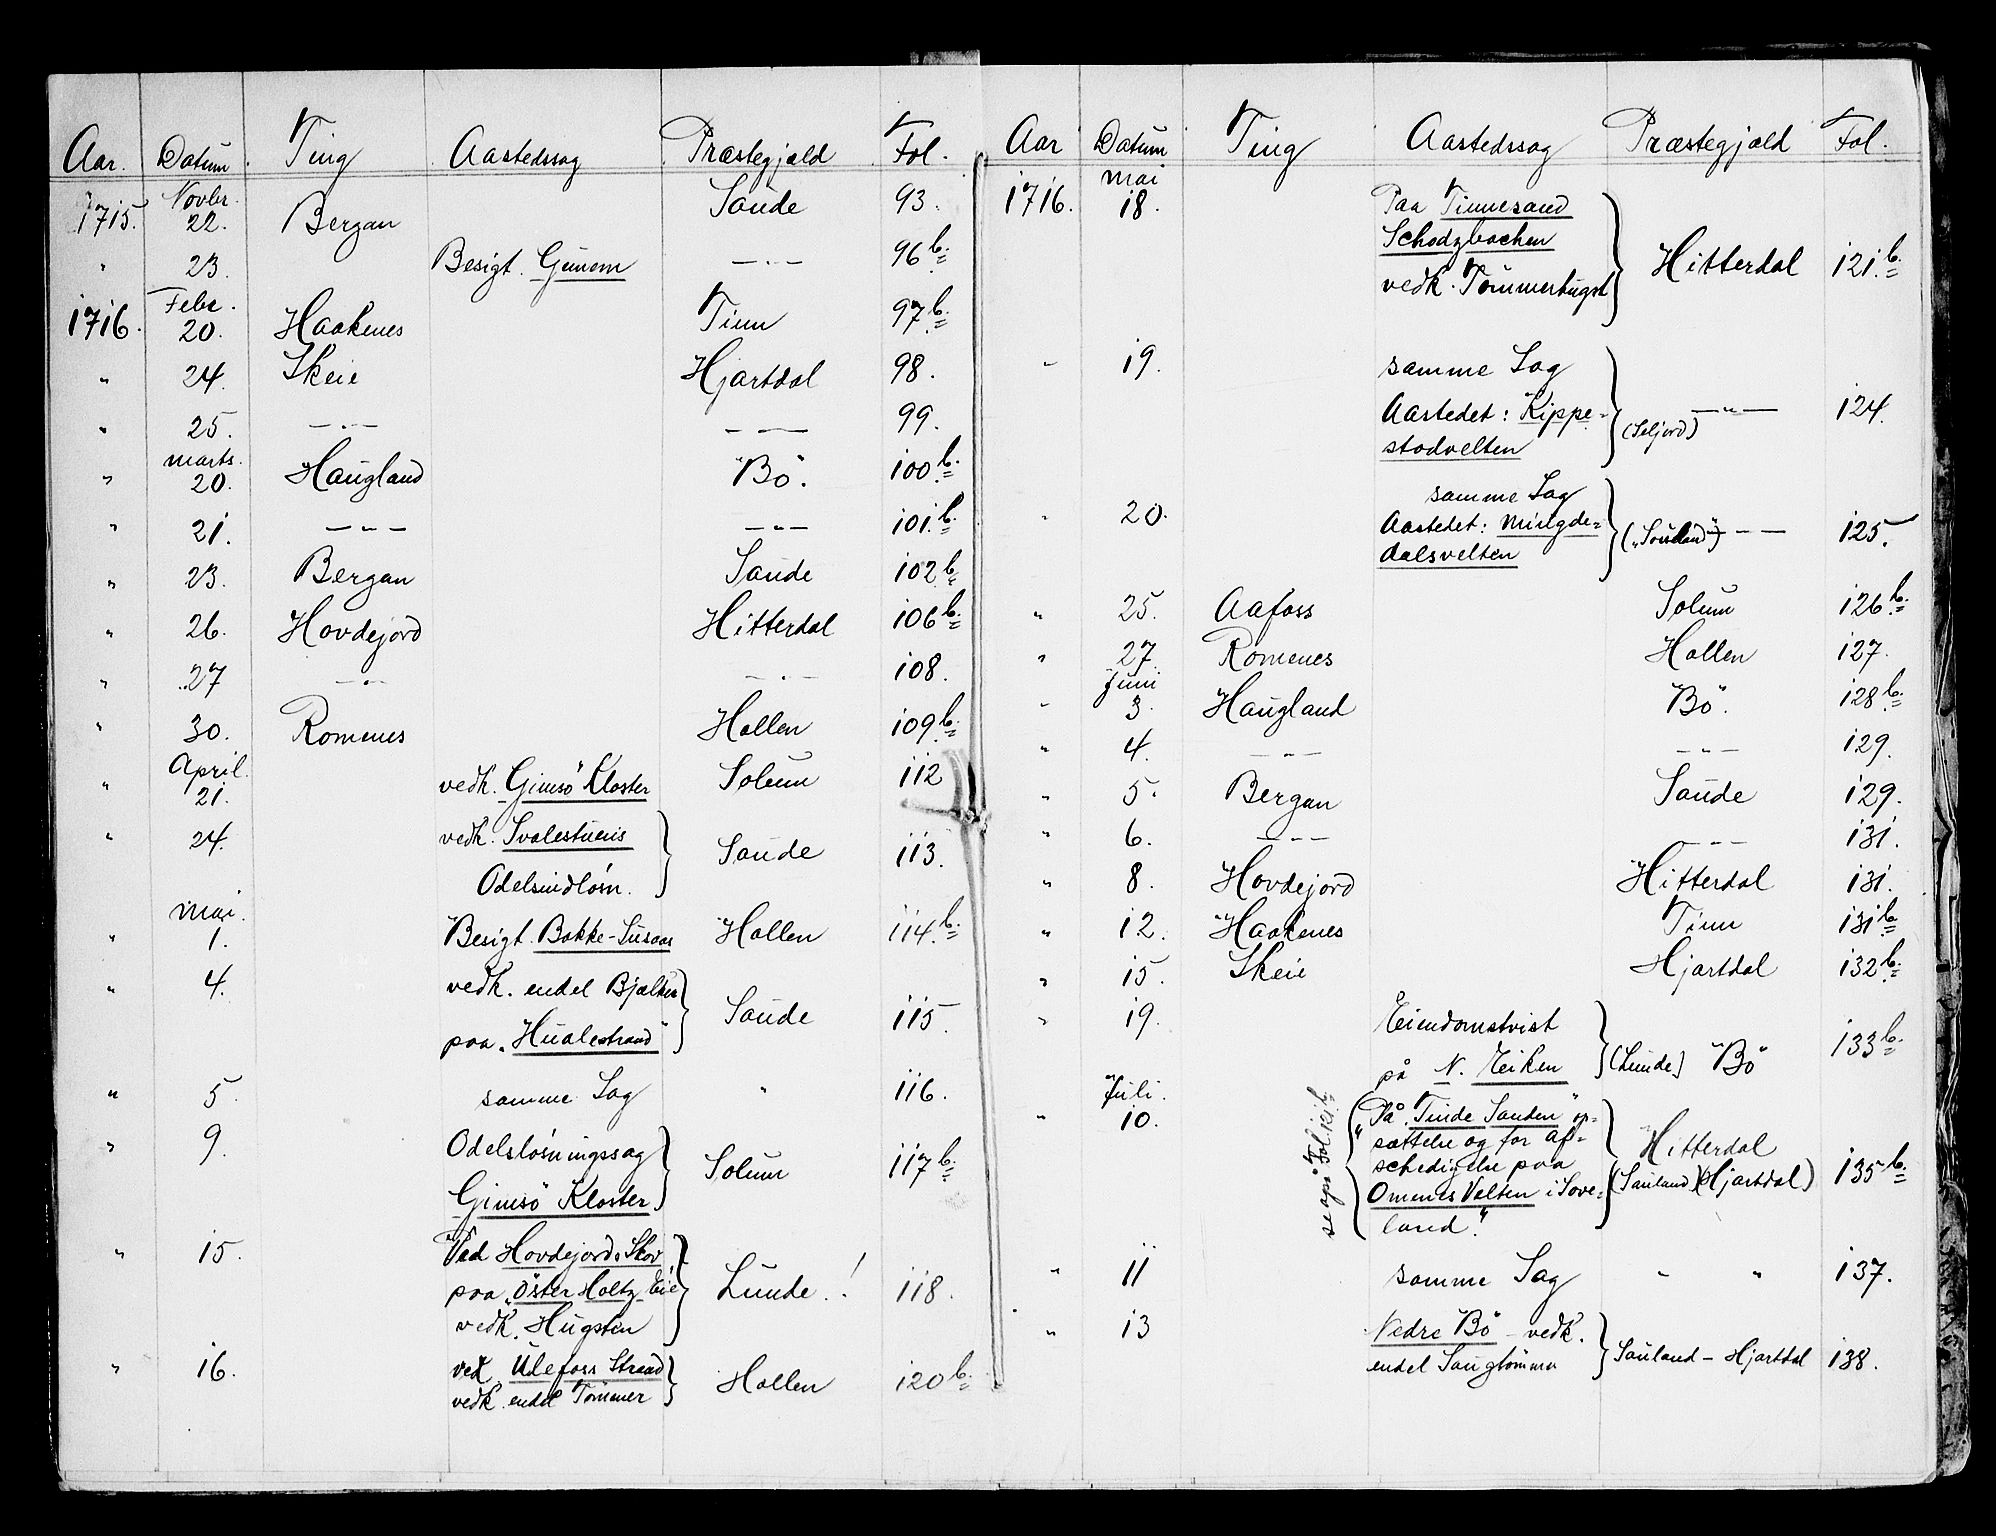 Aar. Datum. Ting Aastedssag Præstegjæld Fol.
1715. Novbr. 22. Bergan Saude 93.
" 23. Besigt. Gunem — " — 96 b.
1716. Febr. 20. Haakenes Tinn 97 b.
" 24. Skeie Hjartdal 98.
" 25. — " — — " — 99.
" Marts. 20. Haugland Bö. 100 b.
" 21. — " — — " — 101 b.
" 23. Bergan Saude 102 b.
" 26. Hovdejord Hitterdal 106 b.
" 27 — " — — " — 108.
" 30. Romenes Hollen 109 b.
" April. 21. vedk. Gimsö Kloster Solum 112
" 24. vedk. Svalestuens
Odelsindlösn. Saude 113.
" Mai. 1. Besigt. Bakke-Susaas Hollen 114 b.
" 4. vedk. endel Bjælker
paa „Hualestrand" Saude 115.
" 5. samme Sag " 116.
" 9. Odelslösningssag
Gimsö Kloster Solum 117 b.
" 15. Ved Hovdejords Skov
paa „Öster Holtz Eie"
vedk. Hugsten Lunde! 118.
" 16. ved Ulefoss Strand
vedk. endel Tömmer Hollen 120 b.
Aar Datum Ting Aastedssag Præstegjæld Fol.
1716. Mai 18. Paa Tinnesand
Schodzbachen
vedk. Tömmerhugst Hitterdal 121 b.
" 19. samme Sag
Aastedet: Kippe-
stadvelten (Seljord) — " — 124.
" 20. samme Sag
Aastedet: Mingde-
dalsvelten („Souland") — " — 125.
" 25. Aafoss Solum 126 b.
" 27. Romenes Hollen 127.
" Juni 3. Haugland Bö. 128 b.
" 4. — " — — " — 129.
" 5. Bergan Saude 129.
" 6. — " — — " — 131.
" 8. Hovdejord Hitterdal 131.
" 12. Haakenes Tinn 131 b.
" 15. Skeie Hjartdal 132 b.
" 19. Eiendomstvist
på N. Eiken (Lunde) Bö 133 b.
" Juli. 10. „På Tinde Sanden" op-
sættelse og for af-
schedigelse paa
Omenes Velten i Sove-
land." Hitterdal (Sauland) (Hjartdal) 135 b.
se også Fol 121 b.
" 11 samme Sag " " 137.
" 13 Nedre Bö - vedk.
endel Saugtömmer Sauland - Hjartdal 138.